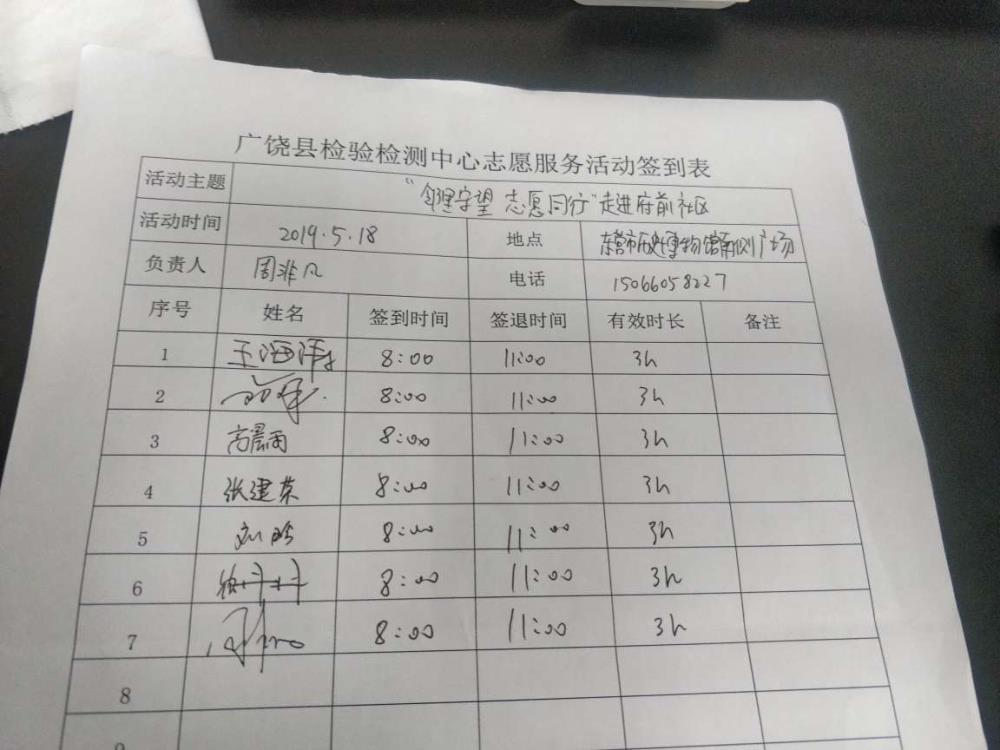 广饶县检验检测中心志愿服务活动签到表
活动主题 "邻里守望 志愿同行"走进府前社区
活动时间 2019.5.18 地点 东营市历史博物馆南侧广场
负责人 周非凡 电话 15066058227
序号 姓名 签到时间 签退时间 有效时长 备注
1 王海洋 8:00 11:00 3h
2 8:00 11:00 3h
3 高晨雨 8:00 11:00 3h
4 张建荣 8:00 11:00 3h
5 8:00 11:00 3h
6 徐丹丹 8:00 11:00 3h
7 8:00 11:00 3h
8